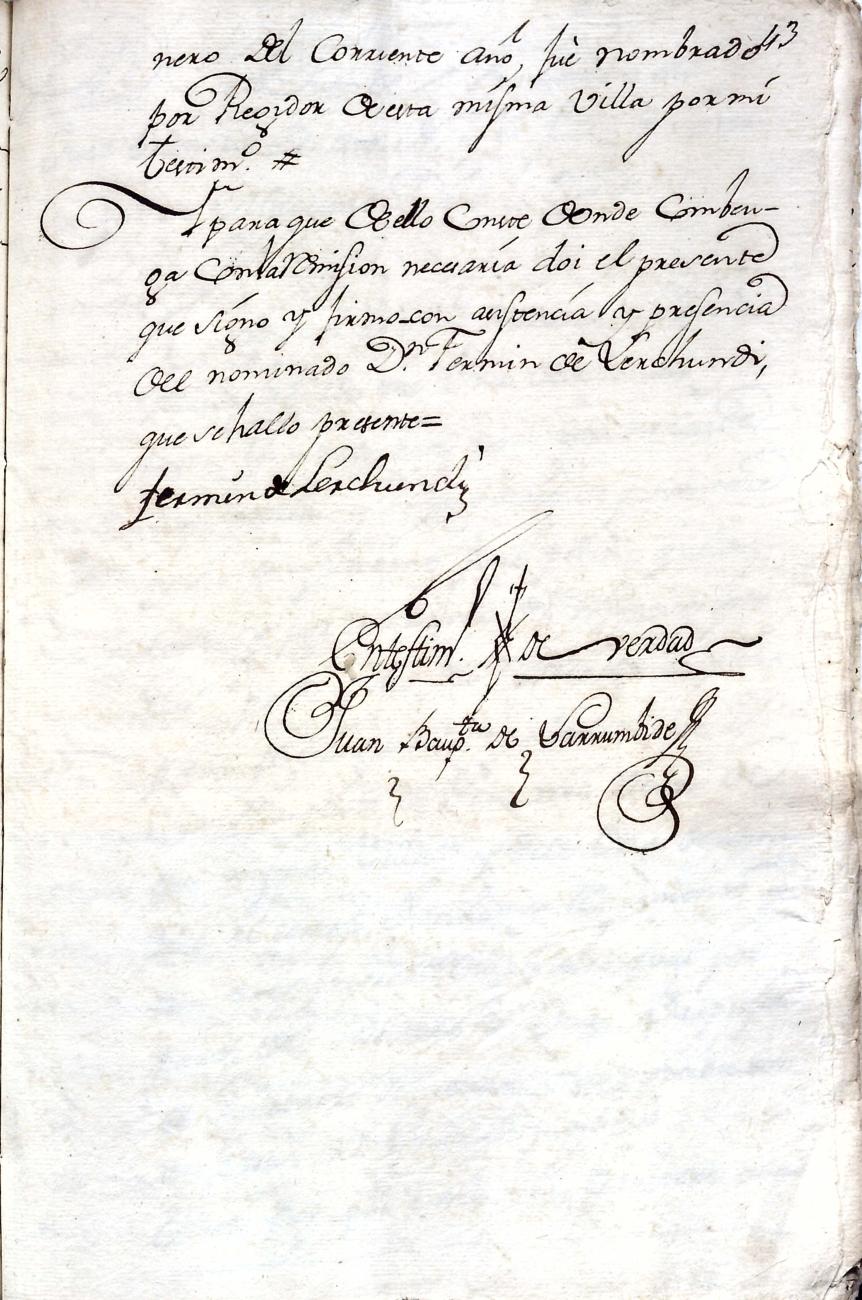 43
nero del Corriente año, fuè nombrado
por Regidor de esta misma Villa por mi
testim.º #
Y para que de ello Conste donde Comben-
ga Con la Remision necesaria doi el presente
que signo y firmo con asistencia y presencia
del nominado D.n Fermin de Lerchundi,
que se hallo presente=
fermin de Lerchundi
En testim.º de verdad
Juan Baup.ta de Larrumbide